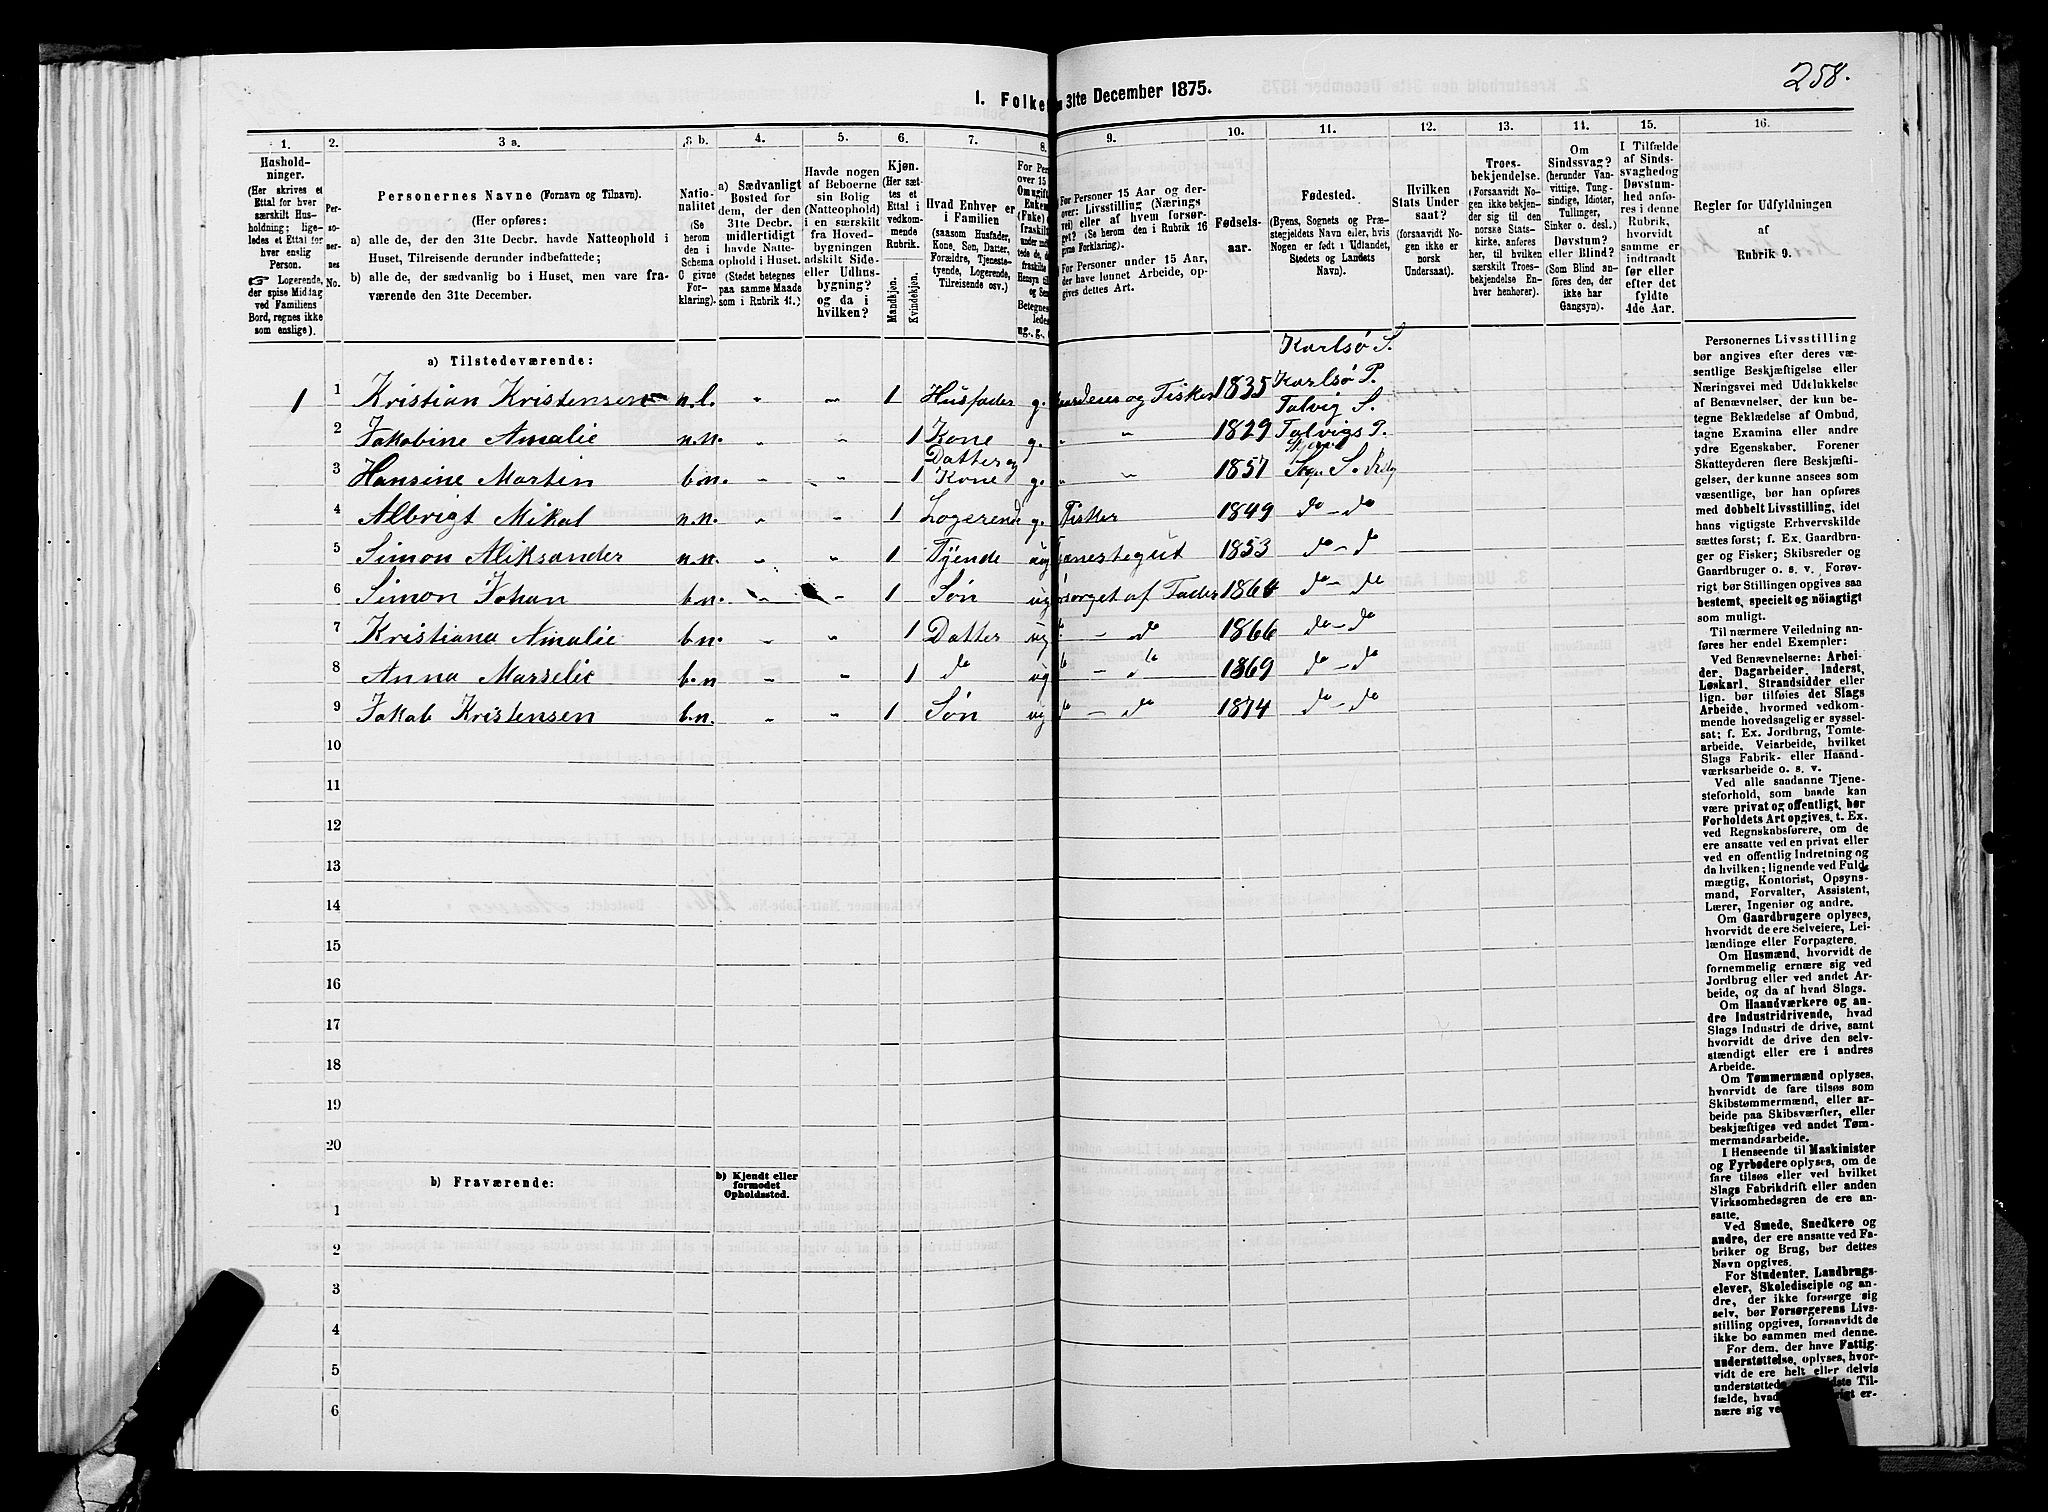 258.
I. Folke 31te December 1875.
1. 2. 3 a. 3 b. 4. 5. 6. 7. 8. 9. 10. 11. 12. 13. 14. 15. 16.
Hushold-
ninger.
(Her skrives et
Ettal for hver
særskilt Hus-
holdning; lige-
ledes et Ettal for
hver enslig
Person.
Logerende,
der spise Middag
ved Familiens
Bord, regnes ikke
som enslige).
Per-
so-
ner-
nes
No.
Personernes Navne (Fornavn og Tilnavn).
(Her opføres:
a) alle de, der den 31te Decbr. havde Natteophold i
Huset, Tilreisende derunder indbefattede;
b) alle de, der sædvanlig bo i Huset, men vare fra-
værende den 31te December.
Natio-
nalitet
(Se
herom
den i
Schema
C givne
For-
klaring).
a) Sædvanligt
Bosted for
dem, der den
31te Decbr.
midlertidigt
havde Natte-
ophold i Huset.
(Stedet betegnes
paa samme Maade
som i Rubrik 11.)
Havde nogen
af Beboerne
sin Bolig
(Natteophold)
i en særskilt
fra Hoved-
bygningen
adskilt Side-
eller Udhus-
bygning?
og da i
hvilken?
Kjøn.
(Her sæt-
tes et
Ettal i
vedkom-
mende
Rubrik.
Mandkjøn.
Kvindekjøn.
Hvad Enhver er
i Familien
(saasom Husfader,
Kone, Søn, Datter,
Forældre, Tjeneste-
tyende, Logerende,
Tilreisende osv.)
For Per
15
Omugift
Enkem
(Fnke)
fraskilt
ledes
ug., g.,
For Personer 15 Aar og der-
over: Livsstilling (Nærings
vei) eller af hvem forsør-
get? (Se herom den i Rubrik 16
givne Forklaring).
For Personer under 15 Aar,
der have lønnet Arbeide, op-
gives dettes Art.
Fødsels-
aar.
Fødested.
(Byens, Sognets og Præ-
stegjeldets Navn eller, hvis
Nogen er født i Udlandet,
Stedets og Landets
Navn).
Hvilken
Stats Under
saat?
(forsaavidt No-
gen ikke er
norsk
Undersaat).
Troes-
bekjendelse.
(Forsaavidt No-
gen ikke bekjen-
der sig til den
norske Stats-
kirke, anføres
her, til hvilken
særskilt Troes-
bekjendelse En-
hver henhorer).
Om
Sindssvag?
(herunder Van-
vittige, Tung-
sindige, Idioter,
Tullinger,
Sinker o. desl.)
Døvstum?
eller Blind?
(Som Blind an-
føres den, der
ikke har
Gangsyn).
I Tilfælde
af Sinds-
svaghed og
Døvstum-
hed anfø-
res i denne
Rubrik,
hvorvidt
samme er
indtraadt
før eller
efter det
fyldte
4de Aar.
Regler for Udfyldningen
af
Rubrik 9.
a) Tilstedeværende:
Karlsø S.
1 1 Kristian Kristensen n.l. " " 1 Husfader g. og Fisker 1835 Karlsø P.
Talvig S.
2 Jakobine Amalie n.n. " " 1 Kone g. " " 1829 Talvigs P.
Datter og
3 Hansine Martin b.n. " " 1 Kone g. " " 1857
4 Albrigt Mikal n.n. " " 1 Logerende g. Fisker 1849 do – do
5 Simon Aliksander n.n. " " 1 Tjende ug 1853 do – do
6 Simon Johan b.n. " " 1 Søn ug sørget af Fader 1864 do – do
7 Kristiana Amalie b.n. " " 1 Datter ug do – do 1866 do – do
8 Anna Marselie b.n " " 1 do ug do – do 1869 do – do
9 Jakob Kristensen b.n. " " 1 Søn ug do – do 1874 do – do
10
11
12
13
14
15
16
17
18
19
20
b) Fraværende:
b) Kjendt eller
formodet
Opholdssted.
1
2
3
4
5
6
Personernes Livsstilling
bør angives efter deres væ-
sentlige Beskjæftigelse eller
Næringsvei med Udelukkelse
af Benævnelser, der kun be-
tegne Beklædelse af Ombud,
tagne Examina eller andre
ydre Egenskaber. Forener
Skatteyderen flere Beskjæfti-
gelser, der kunne ansees som
væsentlige, bør han opføres
med dobbelt Livsstilling, idet
hans vigtigste Erhvervskilde
sættes først; f. Ex. Gaardbru-
ger og Fisker; Skibsreder og
Gaardbruger o. s. v. Forøv-
rigt bør Stillingen opgives saa
bestemt, specielt og nöiagtigt
som muligt.
Til nærmere Veiledning an-
føres her endel Exempler:
Ved Benævnelserne: Arbei-
der, Dagarbeider, Inderst,
Løskarl, Strandsidder eller
lign. bør tilføies det Slags
Arbeide, hvormed vedkom-
mende hovedsagelig er syssel-
sat; f. Ex. Jordbrug, Tomte-
arbeide, Veiarbeide, hvilket
Slags Fabrik- eller Haand-
værksarbeide o. s. v.
Ved alle saadanne Tjene-
steforhold, som baade kan
være privat og offentligt, bør
Forholdets Art opgives, t. Ex.
ved Regnskabsførere, om de
ere ansatte ved en privat eller
ved en offentlig Indretning og
da hvilken; lignende ved Fuld-
mægtig, Kontorist, Opsyns-
mand, Forvalter, Assistent,
Lærer, Ingeniør og andre.
Om Gaardbrugere oplyses,
hvorvidt de ere Selveiere, Lei-
lændinge eller Forpagtere.
Om Husmænd, hvorvidt de
fornemmelig ernære sig ved
Jordbrug eller ved andet Ar-
beide, og da af hvad Slags.
Om Haandværkere og an-
dre Industridrivende, hvad
Slags Industri de drive, samt
hvorvidt de drive den selv-
stændigt eller ere i andres
Arbeide.
Om Tømmermænd oplyses,
hvorvidt de fare tilsøs som
Skibstømmermænd, eller ar-
beide paa Skibsværfter, eller
beskjæftiges ved andet Tøm-
mermandsarbeide.
I Henseende til Maskinister
og Fyrbødere oplyses, om de
fare tilsøs eller ved hvilket
Slags Fabrikdrift eller anden
Virksomhedsgren de ere an-
satte.
Ved Smede, Snedkere og
andre, der ere ansatte ved Fa-
briker og Brug, bør dettes
Navn opgives.
For Studenter, Landbrugs-
elever, Skoledisciple og an-
dre, der ikke forsørge sig
selv, bør Forsørgerens Livs-
stilling opgives, forsaavidt de
ikke bo sammen med denne.
For dem, der have Fattig-
understøttelse, oplyses, hvor-
vidt de ere helt eller delvis
understøttede Til-
fælde, hvad er-
nære sig